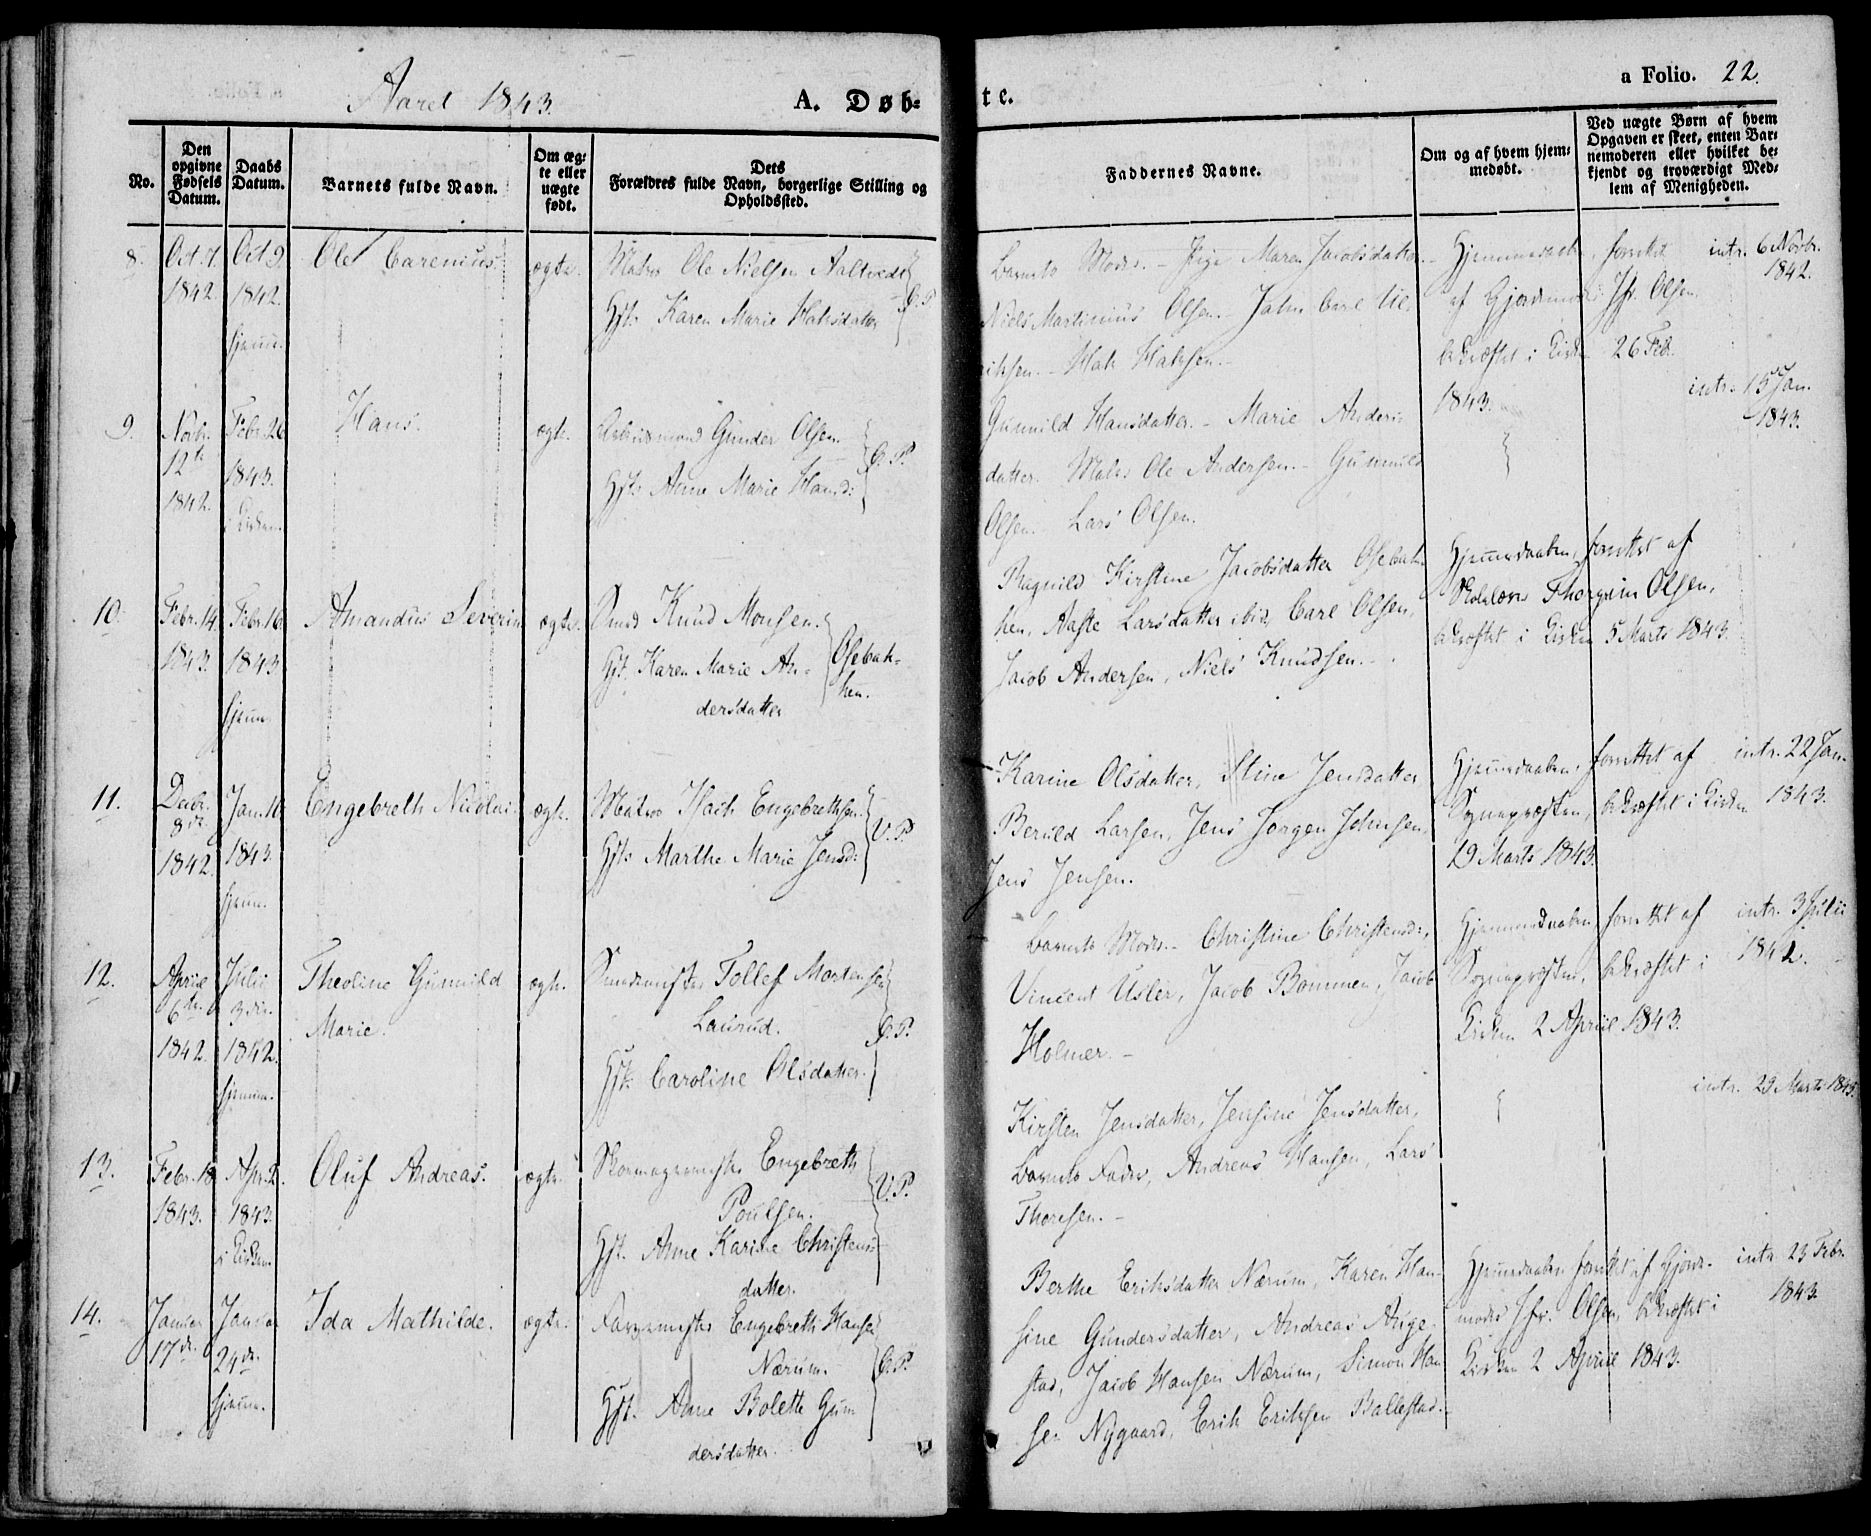 Aaret 1843.
A. Døb-
te.
a Folio. 22.
No.
Den opgivne Fødsels Datum.
Daabs Datum.
Barnets fulde Navn.
Om æg-
te eller
uægte
født.
Dets
Forældres fulde Navn, borgerlige Stilling og
Opholdssted.
Faddernes Navne.
Om og af hvem hjem-
medøbt.
Ved uægte Børn af hvem
Opgaven er skeet, enten Bar-
nemoderen eller hvilket be-
kjendt og troværdigt Med-
lem af Menigheden.
8.
Oct. 7.
1842.
Oct 9
1842.
hjemme.
Ole Carenius.
ægte.
Matros Ole Nielsen Aaltvedt
Hst. Karen Marie Haksdatter
Barnets Moder. - Pige Maren Jacobsdatter.
Niels Martinius Olsen. John Carl
Hak Haksen.
Hjemmedøbt, forrettet
af Gjordemoder Jfr. Olsen,
bekræftet i Kirken 26 Feb.
1843.
intr. 6 Novbr.
1842.
9.
Novbr.
12te
1842.
Febr. 26
1843.
i Kirken.
Hans.
ægte.
Arbeidsmand Gunder Olsen.
Hst. Anne Marie Hansd:
Gunnild Hansdatter. - Marie Anders-
datter. Matros Ole Andersen. - Gunnuld
Olsen. Lars Olsen.
intr. 15 Jan.
1843.
10.
Febr. 14.
1843.
Febr. 16.
1843.
hjemme.
Amandus Severin
ægte.
Knud Monsen.
Hst. Karen Marie An-
dersdatter
Osebak-
ken.
Ragnild Kirstine Jacobsdatter Osebak-
ken, Aaste Larsdatter ibid, Carl Olsen,
Jacob Andersen, Niels Knudsen. -
Hjemmedaaben, forrettet af
Skolelærer Thorgrim Olsen,
bekræftet i Kirken 5 Marts 1843.
11.
Decbr.
8de
1842.
Jan. 16
1843.
hjemme.
Engebreth Nicolai.
ægte.
Matros Isach Engebrethsen.
Hst. Marthe Marie Jensd:
V. P.
Karine Olsdatter, Stine Jensdatter
Berild Larsen, Jens Jørgen Johnsen,
Jens Jensen.
Hjemmedaaben, forrettet af
Sognepræsten, bekræftet i Kirken
19 Marts 1843.
intr. 22 Jan.
1843.
12.
April
6te
1842.
Julii
3die
1842.
hjemme.
Theoline Gunnild
Marie.
ægte.
Tollef Mortensen
Laurud.
Hst. Caroline Olsdatter.
Barnets Moder. - Christine Christensd:,
Vincent Usler, Jacob Bommen, Jacob
Holmer. -
Hjemmedaaben, forrettet af
Sognepræsten, bekræftet i
Kirken 2 April 1843.
intr. 3 Julii
1842.
13.
Febr. 18
1843.
Apr. 2.
1843.
i Kirken.
Oluf Andreas.
ægte.
Skomagermester Engebreth
Poulsen.
Hst. Anne Karine Christens-
datter.
V. P.
Kirsten Jensdatter, Jensine Jensdatter,
Barnets Fader, Andreas Hansen, Lars
Thoresen. -
intr. 29 Marts 1843.
14.
Januar
17de
Januar
24de
hjemme.
Ida Mathilde.
ægte.
Farvermester Engebreth Hansen
Nærum.
Hst. Anne Bolette Gun-
dersdatter.
Berthe Eriksdatter Nærum, Karen Han-
sine Gundersdatter, Andreas Auge-
stad, Jacob Hansen Nærum, Simon Han-
sen Nygaard, Erik Eriksen Ballestad. -
Hjemmedaaben forrettet af Gjorde-
moder Jfr. Olsen, bekræftet i
Kirken 2 April 1843.
intr. 23 Febr.
1843.